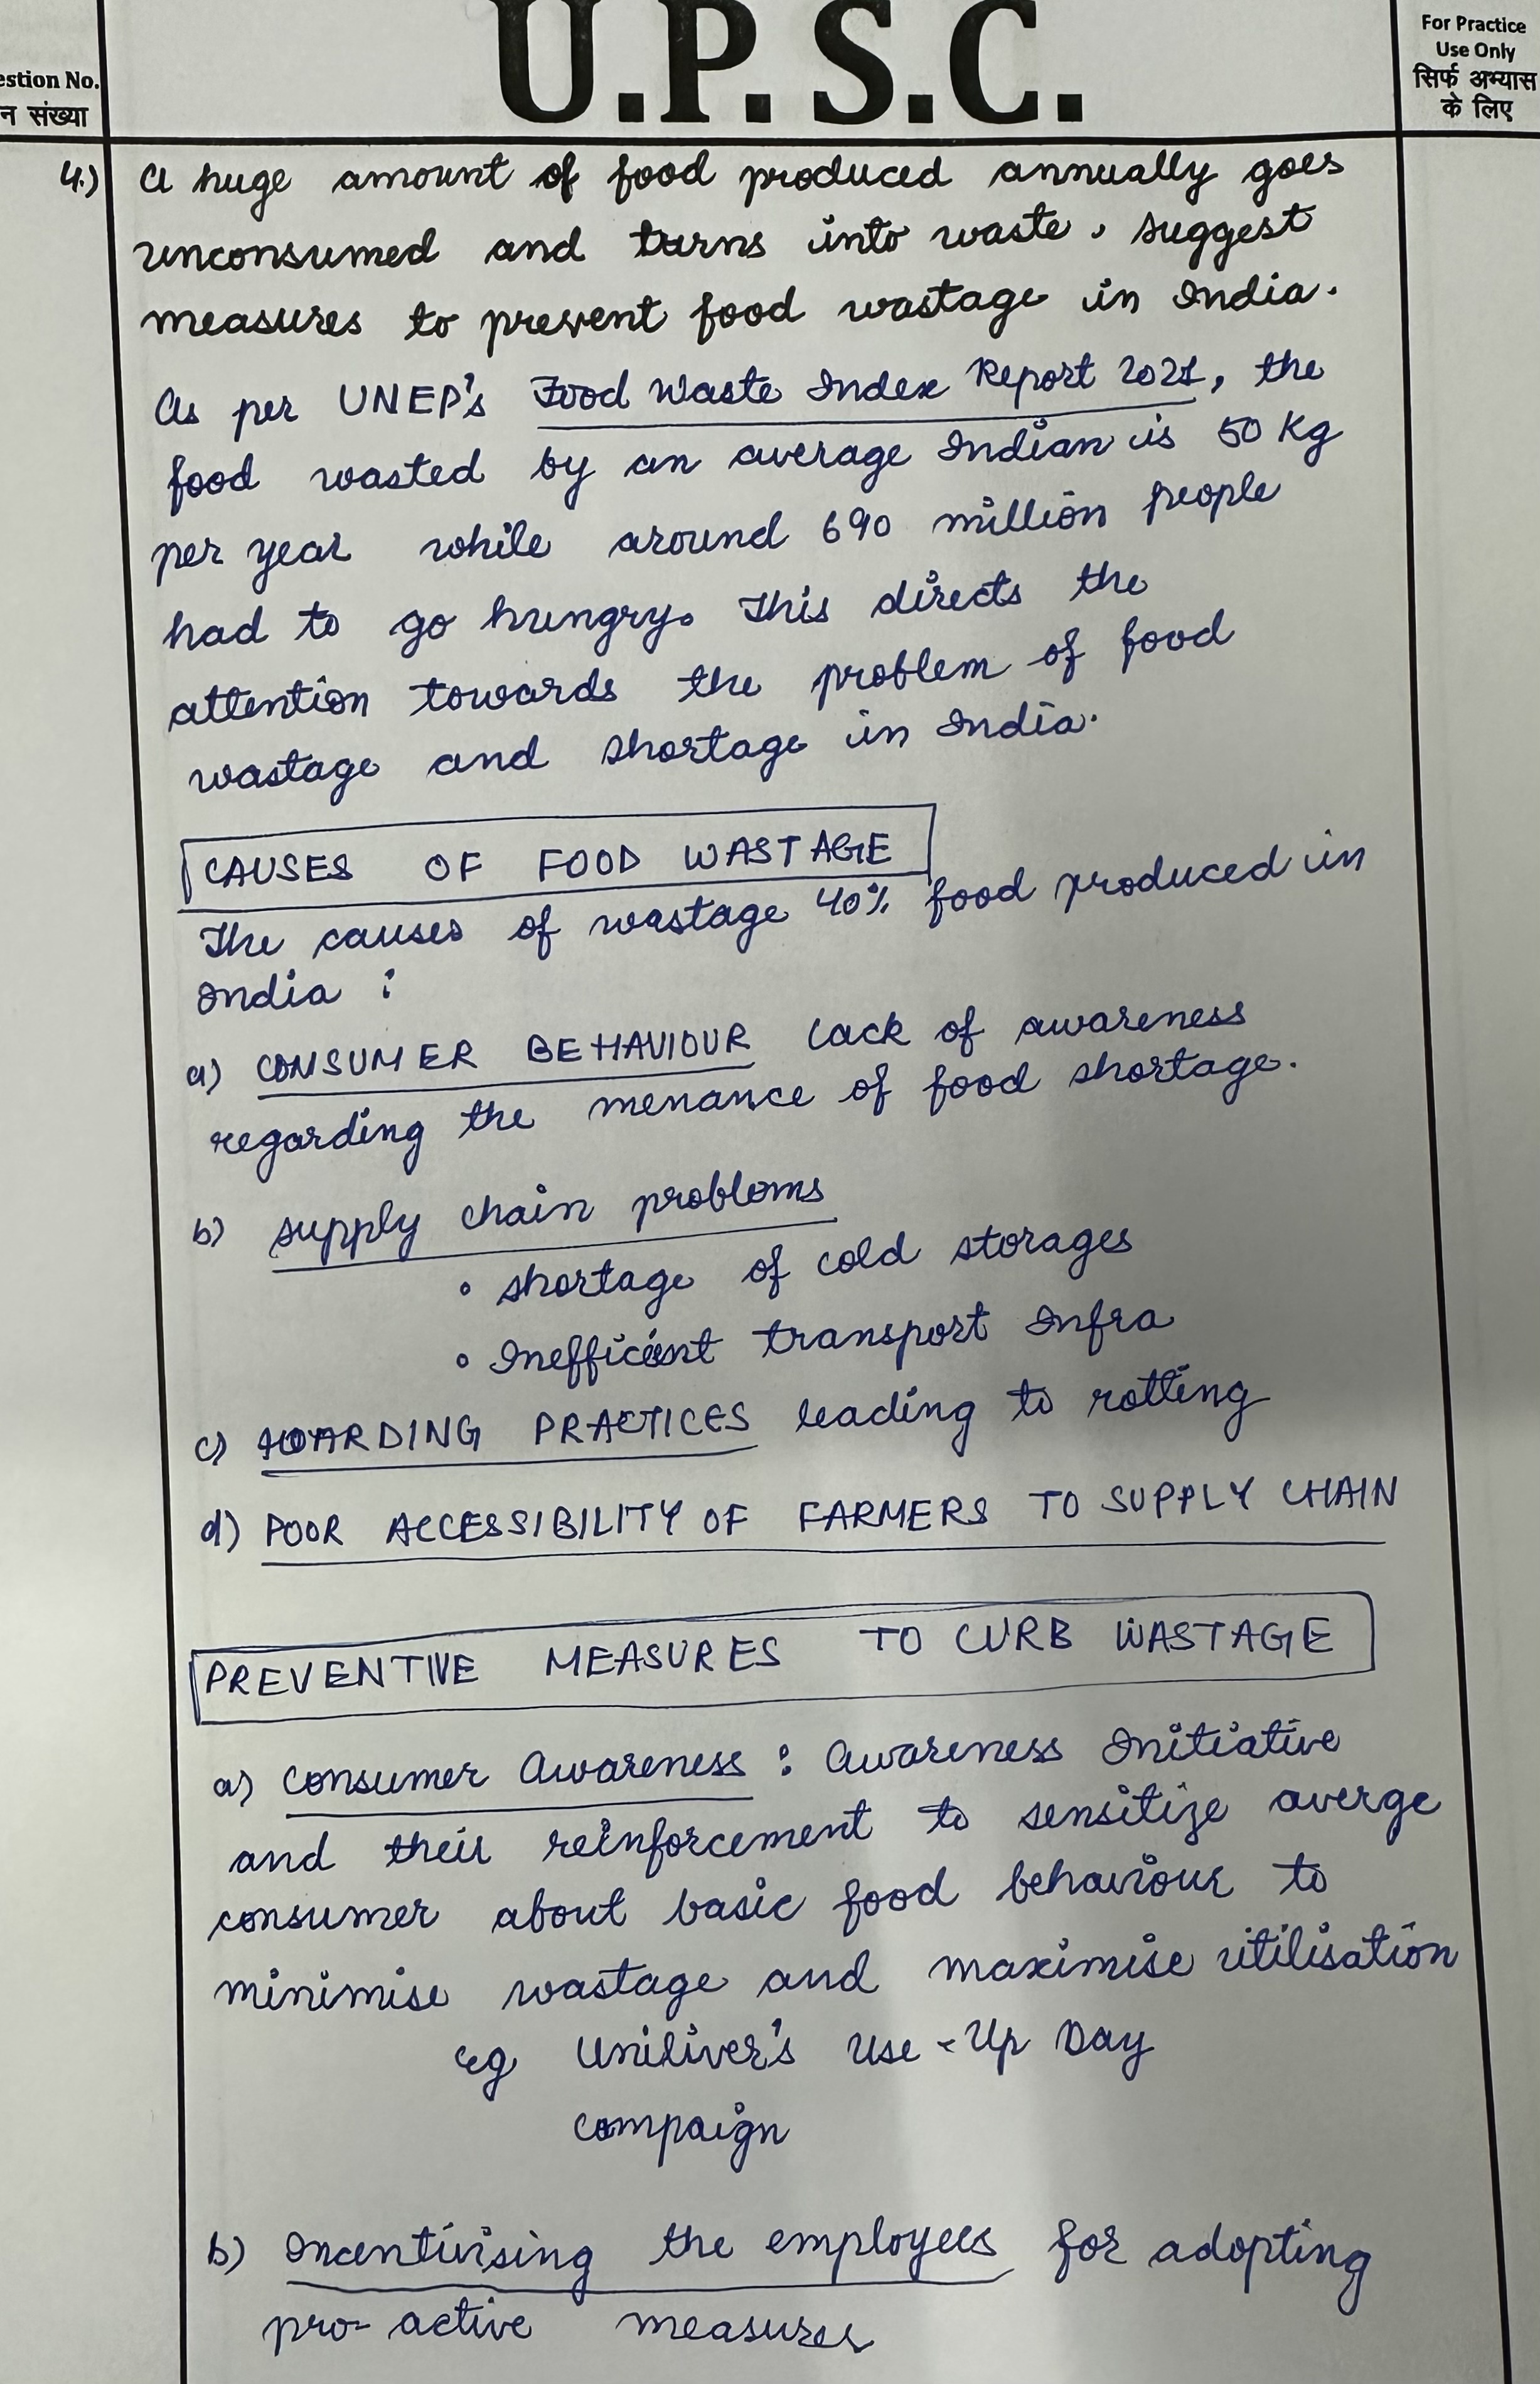 U.P.S.C.
For Practice
Use Only
सिर्फ अभ्यास
के लिए
estion No.
न संख्या
4.) A huge amount of food produced annually goes
unconsumed and turns into waste. Suggest
measures to prevent food wastage in India.
As per UNEP's Food Waste Index Report 2021, the
food wasted by an average Indian is 50 Kg
per year while around 690 million people
had to go hungry. This directs the
attention towards the problem of food
wastage and shortage in India.
CAUSES OF FOOD WASTAGE
The causes of wastage 40% food produced in
India :
a) CONSUMER BEHAVIOUR lack of awareness
regarding the menance of food shortage.
b) supply chain problems
• shortage of cold storages
• Inefficient transport Infra
c) HOARDING PRACTICES leading to rotting
d) POOR ACCESSIBILITY OF FARMERS TO SUPPLY CHAIN
PREVENTIVE MEASURES TO CURB WASTAGE
a) Consumer Awareness : Awareness Initiative
and their reinforcement to sensitize averge
consumer about basic food behaviour to
minimise wastage and maximise utilisation
eg Uniliver's Use-Up Day
campaign
b) Incentivising the employees for adopting
pro-active measures